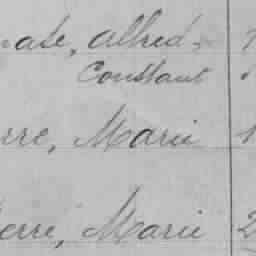 Alfred
Constant
erre, Marie 1
erre, Marie 2